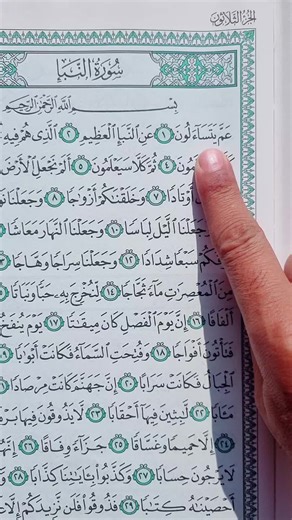 الجزء الثلاثون
سُورَةُ النَّبَإِ
بِسْمِ اللَّهِ الرَّحْمَٰنِ الرَّحِيمِ
عَمَّ يَتَسَآءَلُونَ ١ عَنِ النَّبَإِ الْعَظِيمِ ٢ الَّذِى هُمْ فِيهِ
٤ ثُمَّ كَلَّا سَيَعْلَمُونَ ٥ أَلَمْ نَجْعَلِ الْأَرْضَ
أَوْتَادًا ٧ وَخَلَقْنَٰكُمْ أَزْوَٰجًا ٨ وَجَعَلْنَا
وَجَعَلْنَا الَّيْلَ لِبَاسًا ١٠ وَجَعَلْنَا النَّهَارَ مَعَاشًا
سَبْعًا شِدَادًا ١٢ وَجَعَلْنَا سِرَاجًا وَهَّاجًا
مِنَ الْمُعْصِرَٰتِ مَآءً ثَجَّاجًا ١٤ لِّنُخْرِجَ بِهِۦ حَبًّا وَنَبَاتًا
أَلْفَافًا ١٦ إِنَّ يَوْمَ الْفَصْلِ كَانَ مِيقَٰتًا ١٧ يَوْمَ يُنفَخُ
فَتَأْتُونَ أَفْوَاجًا ١٨ وَفُتِحَتِ السَّمَآءُ فَكَانَتْ أَبْوَٰبًا
الْجِبَالُ فَكَانَتْ سَرَابًا ٢٠ إِنَّ جَهَنَّمَ كَانَتْ مِرْصَادًا
مَـَٔابًا ٢٢ لَّٰبِثِينَ فِيهَآ أَحْقَابًا ٢٣ لَّا يَذُوقُونَ فِيهَا
٢٤ إِلَّا حَمِيمًا وَغَسَّاقًا ٢٥ جَزَآءً وِفَاقًا ٢٦ إِنَّهُمْ
لَا يَرْجُونَ حِسَابًا ٢٧ وَكَذَّبُوا۟ بِـَٔايَٰتِنَا كِذَّابًا ٢٨
أَحْصَيْنَٰهُ كِتَٰبًا ٢٩ فَذُوقُوا۟ فَلَن نَّزِيدَكُمْ